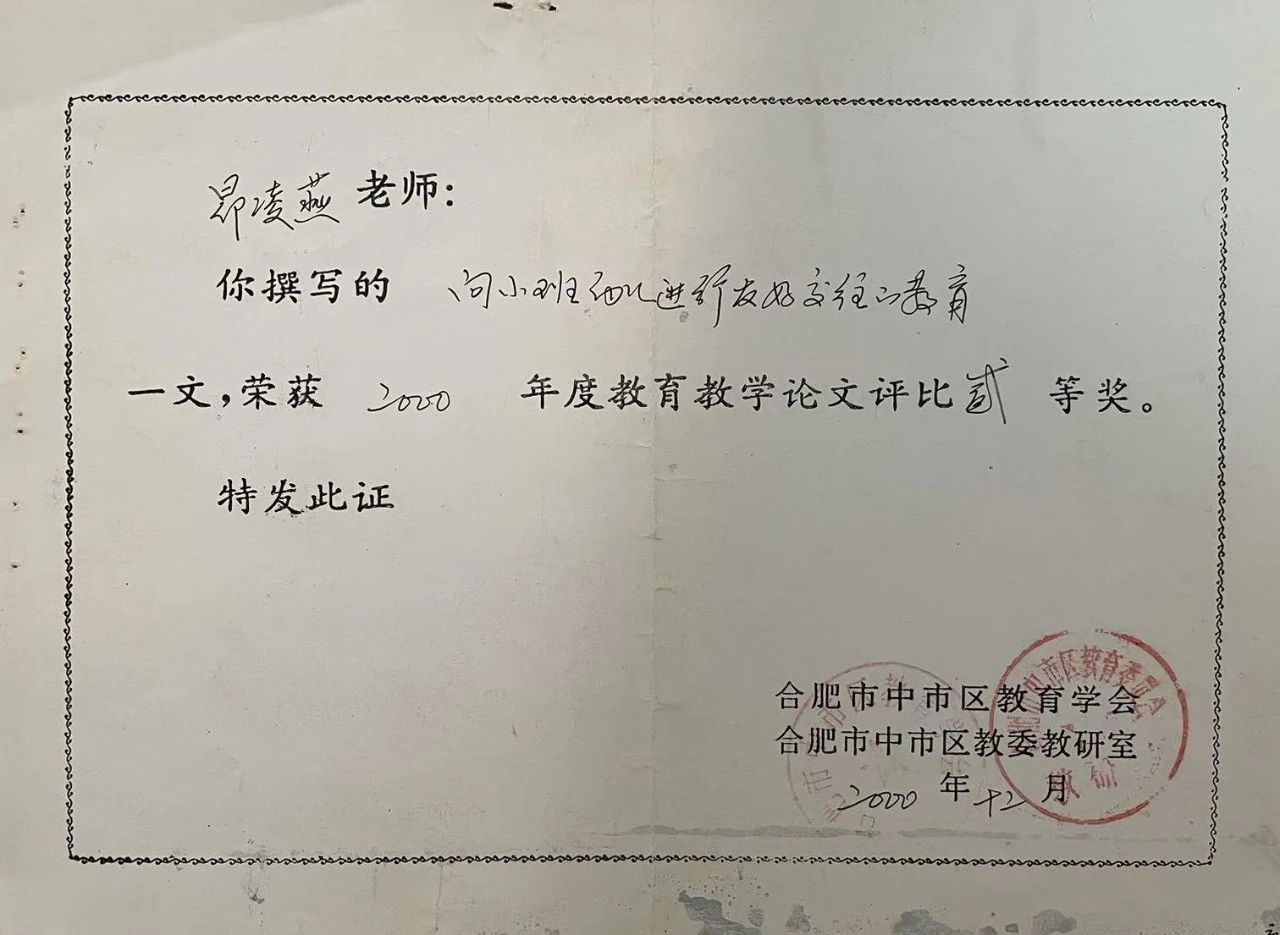 昂凌燕老师：
你撰写的 向小班幼儿进行友好交往的教育
一文，荣获 2000 年度教育教学论文评比贰等奖。
特发此证
合肥市中市区教育学会
合肥市中市区教委教研室
2000年十二月
市区教
肥市中市区教育委员会
教研